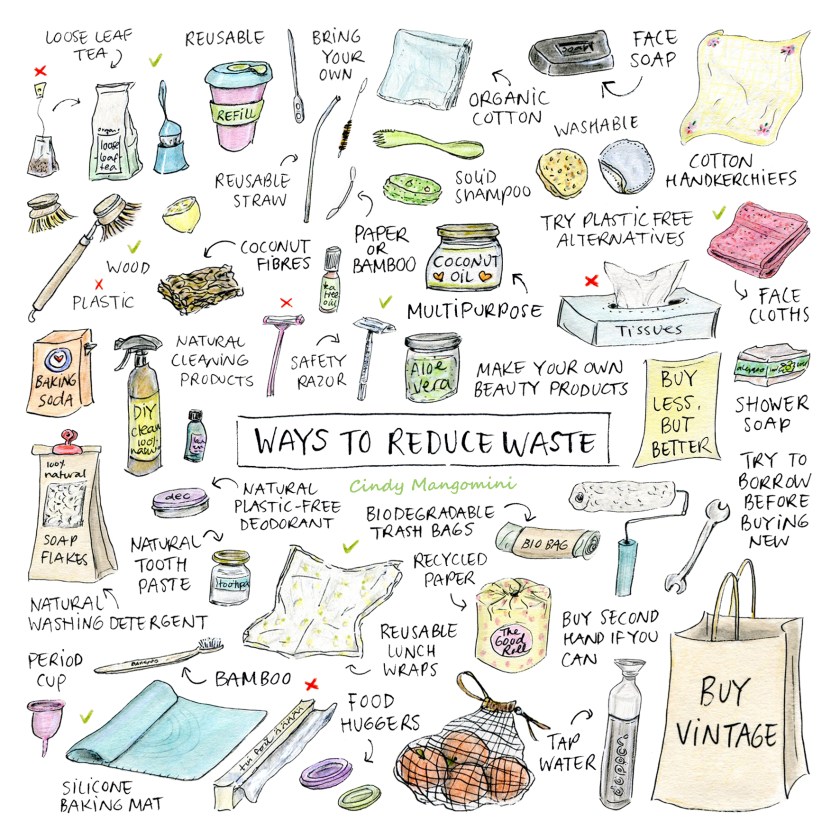 LOOSE LEAF
TEA
REUSABLE
REFILL
BRING
YOUR
OWN
ORGANIC
COTTON
SOAP
FACE
SOAP
organic
loose
leaf
tea
WASHABLE
COTTON
HANDKERCHIEFS
REUSABLE
STRAW
SOLID
SHAMPOO
TRY PLASTIC FREE
ALTERNATIVES
PAPER
OR
BAMBOO
COCONUT
FIBRES
WOOD
PLASTIC
tea
tree
oil
COCONUT
OIL
MULTIPURPOSE
TISSUES
FACE
CLOTHS
BAKING
SODA
NATURAL
CLEANING
PRODUCTS
SAFETY
RAZOR
Aloe
vera
MAKE YOUR OWN
BEAUTY PRODUCTS
BUY
LESS,
BUT
BETTER
SHOWER
SOAP
DIY
clean
100%
WAYS TO REDUCE WASTE
Cindy Mangomini
100%
natural
SOAP
FLAKES
NATURAL
WASHING DETERGENT
dec
NATURAL
PLASTIC-FREE
DEODORANT
BIODEGRADABLE
TRASH BAGS
BIO BAG
TRY TO
BORROW
BEFORE
BUYING
NEW
NATURAL
TOOTH
PASTE
toothpa
RECYCLED
PAPER
The
Good
Roll
REUSABLE
LUNCH
WRAPS
BUY SECOND
HAND IF YOU
CAN
PERIOD
CUP
BAMBOO
BAMBOO
SILICONE
BAKING MAT
FOOD
HUGGERS
TAP
WATER
dopper
BUY
VINTAGE